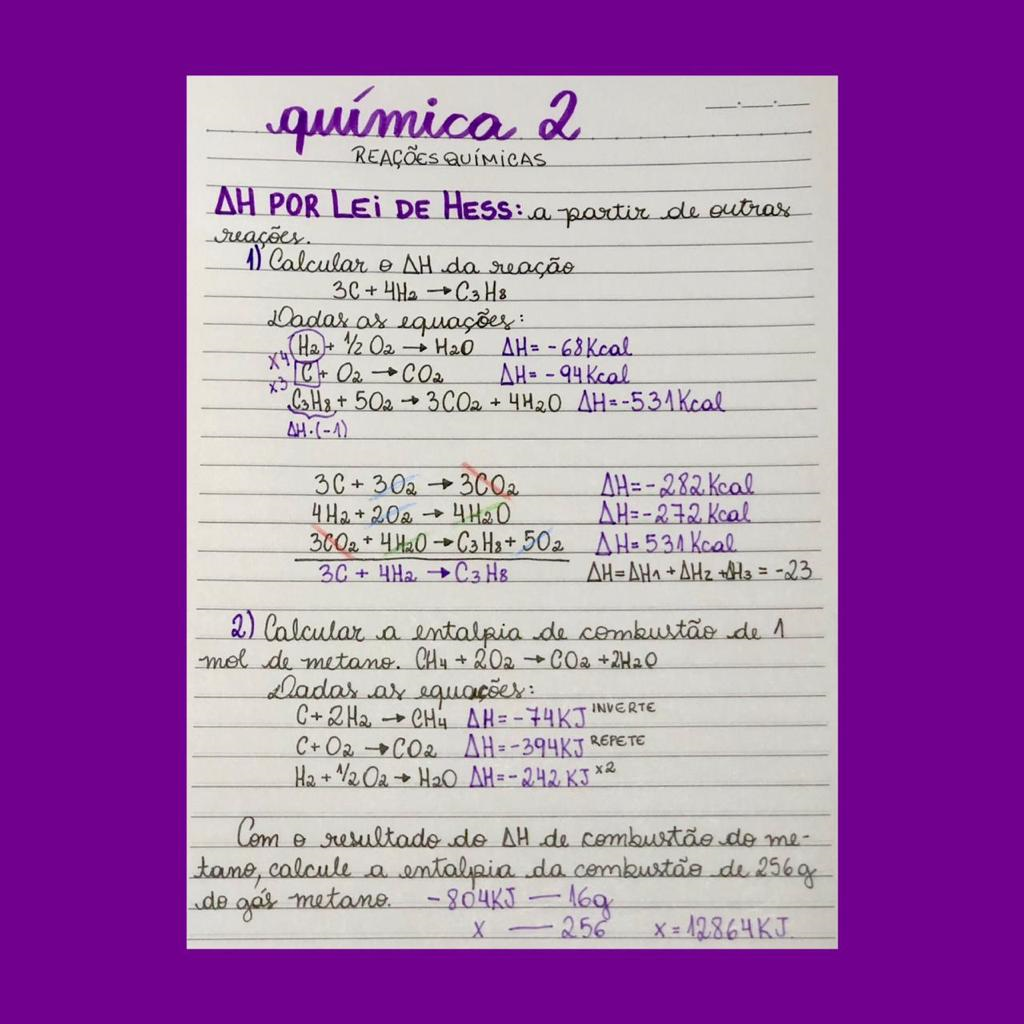 química 2
REAÇÕES QUÍMICAS
ΔH POR LEI DE HESS: a partir de outras
reações.
1) Calcular o ΔH da reação
3C + 4H₂ → C₃H₈
Dadas as equações:
x4 H₂ + ½ O₂ → H₂O ΔH = -68Kcal
x3 C + O₂ → CO₂ ΔH = -94Kcal
C₃H₈ + 5O₂ → 3CO₂ + 4H₂O ΔH = -531Kcal
ΔH·(-1)
3C + 3O₂ → 3CO₂ ΔH = -282Kcal
4H₂ + 2O₂ → 4H₂O ΔH = -272Kcal
3CO₂ + 4H₂O → C₃H₈ + 5O₂ ΔH = 531Kcal
3C + 4H₂ → C₃H₈ ΔH = ΔH₁ + ΔH₂ + ΔH₃ = -23
2) Calcular a entalpia de combustão de 1
mol de metano. CH₄ + 2O₂ → CO₂ + 2H₂O
Dadas as equações:
C + 2H₂ → CH₄ ΔH = -74KJ INVERTE
C + O₂ → CO₂ ΔH = -394KJ REPETE
H₂ + ½O₂ → H₂O ΔH = -242KJ x2
Com o resultado do ΔH de combustão do me-
tano, calcule a entalpia da combustão de 256g
do gás metano. -804KJ — 16g
x — 256 x = 12864KJ